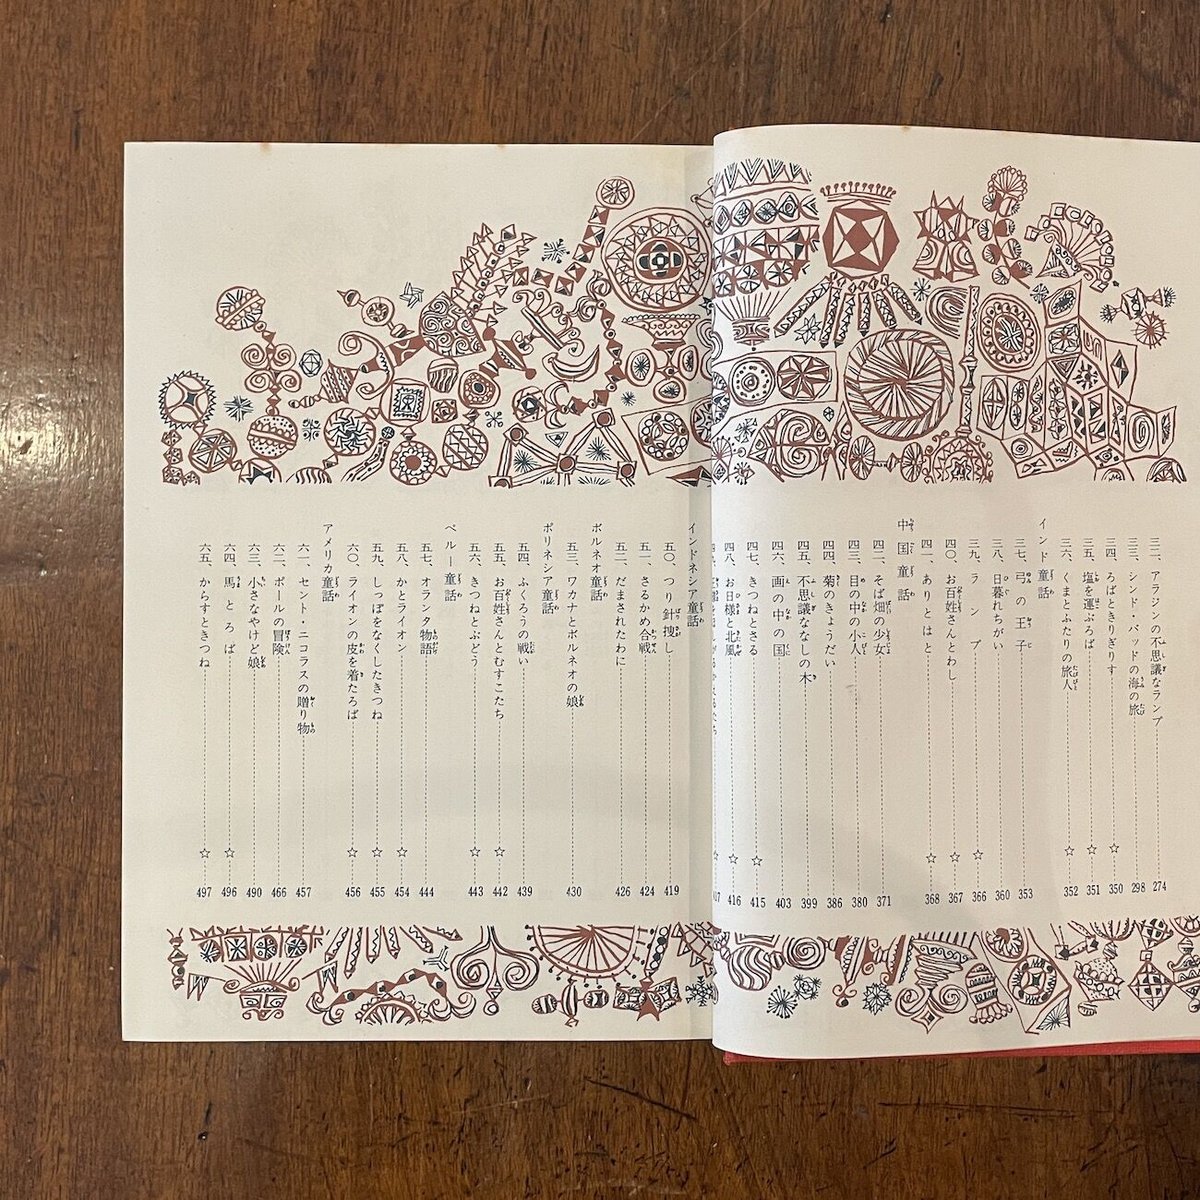 三二、アラジンの不思議なランプ 274
三三、シンド・バッドの海の旅 298
三四、ろばときりぎりす ☆ 350
三五、塩を運ぶろば ☆ 351
三六、くまとふたりの旅人 ☆ 352
インド童話
三七、弓の王子 353
三八、日暮れちがい 360
三九、ランプ ☆ 366
四〇、お百姓さんとわし ☆ 367
四一、ありとはと ☆ 368
中国童話
四二、そば畑の少女 371
四三、目の中の小人 380
四四、菊のきょうだい 386
四五、不思議ななしの木 399
四六、画の中の国 403
四七、きつねとさる ☆ 415
四八、お日様と北風 ☆ 416
インドネシア童話
五〇、つり針捜し 419
五一、さるかめ合戦 424
五二、だまされたわに 426
ボルネオ童話
五三、ワカナとボルネオの娘 430
ポリネシア童話
五四、ふくろうの戦い 439
五五、お百姓さんとむすこたち ☆ 442
五六、きつねとぶどう ☆ 443
ペルー童話
五七、オランタ物語 444
五八、かとライオン ☆ 454
五九、しっぽをなくしたきつね ☆ 455
六〇、ライオンの皮を着たろば ☆ 456
アメリカ童話
六一、セント・ニコラスの贈り物 457
六二、ポールの冒険 466
六三、小さなやけど娘 490
六四、馬とろば ☆ 496
六五、からすときつね ☆ 497